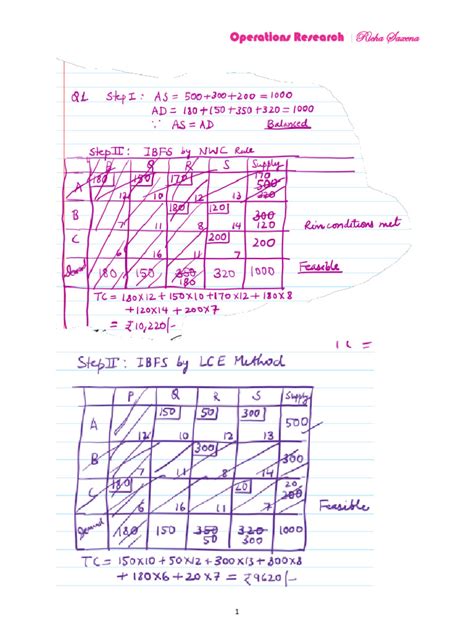 Operations Research | Richa Saxena
Q1 Step I: AS = 500+300+200 = 1000
AD = 180+150+350+320 = 1000
∵ AS = AD Balanced
Step II: IBFS by NWC Rule
P Q R S Supply
A 180 150 170 170 500 320
12 10 12 13
B 180 120 300 120
7 11 8 14
Rim conditions met
C 200 200
6 16 11 7
Demand 180 150 350 180 320 1000
Feasible
TC = 180×12 + 150×10 + 170×12 + 180×8
+ 120×14 + 200×7
= ₹10,220/-
Step II: IBFS by LCE Method
P Q R S Supply
A 150 50 300 500
12 10 12 13
B 300 300
7 11 8 14
C 180 20 20 200
6 16 11 7
Feasible
Demand 180 150 350 50 320 300 1000
TC = 150×10 + 50×12 + 300×13 + 300×8
+ 180×6 + 20×7 = ₹9620/-
1